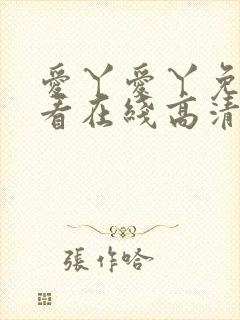 愛丫愛丫免
看在綫高清
張作哈